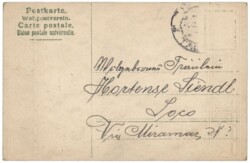 Postkarte.
Weltpostverein.
Carte postale.
Union postale universelle.
Wolgeborenes Fräulein
Hortense Siendl
Loco
Via Miramar